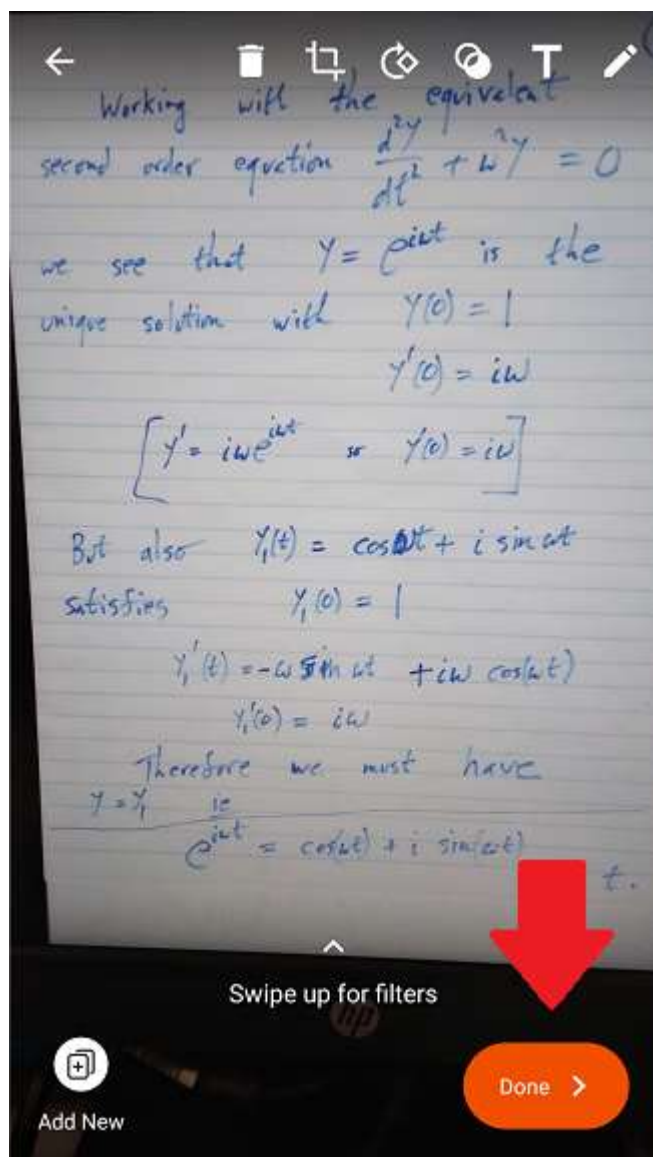 Working with the equivalent
second order equation d²y/dt² + ω²y = 0
we see that y = e^{iωt} is the
unique solution with y(0) = 1
y'(0) = iω
[y' = iωe^{iωt} so y'(0) = iω]
But also y₁(t) = cos ωt + i sin ωt
satisfies y₁(0) = 1
y₁'(t) = -ω sin ωt + iω cos(ωt)
y₁'(0) = iω
Therefore we must have
y = y₁ ie
e^{iωt} = cos(ωt) + i sin(ωt)
t.
Swipe up for filters
hp
Done >
Add New